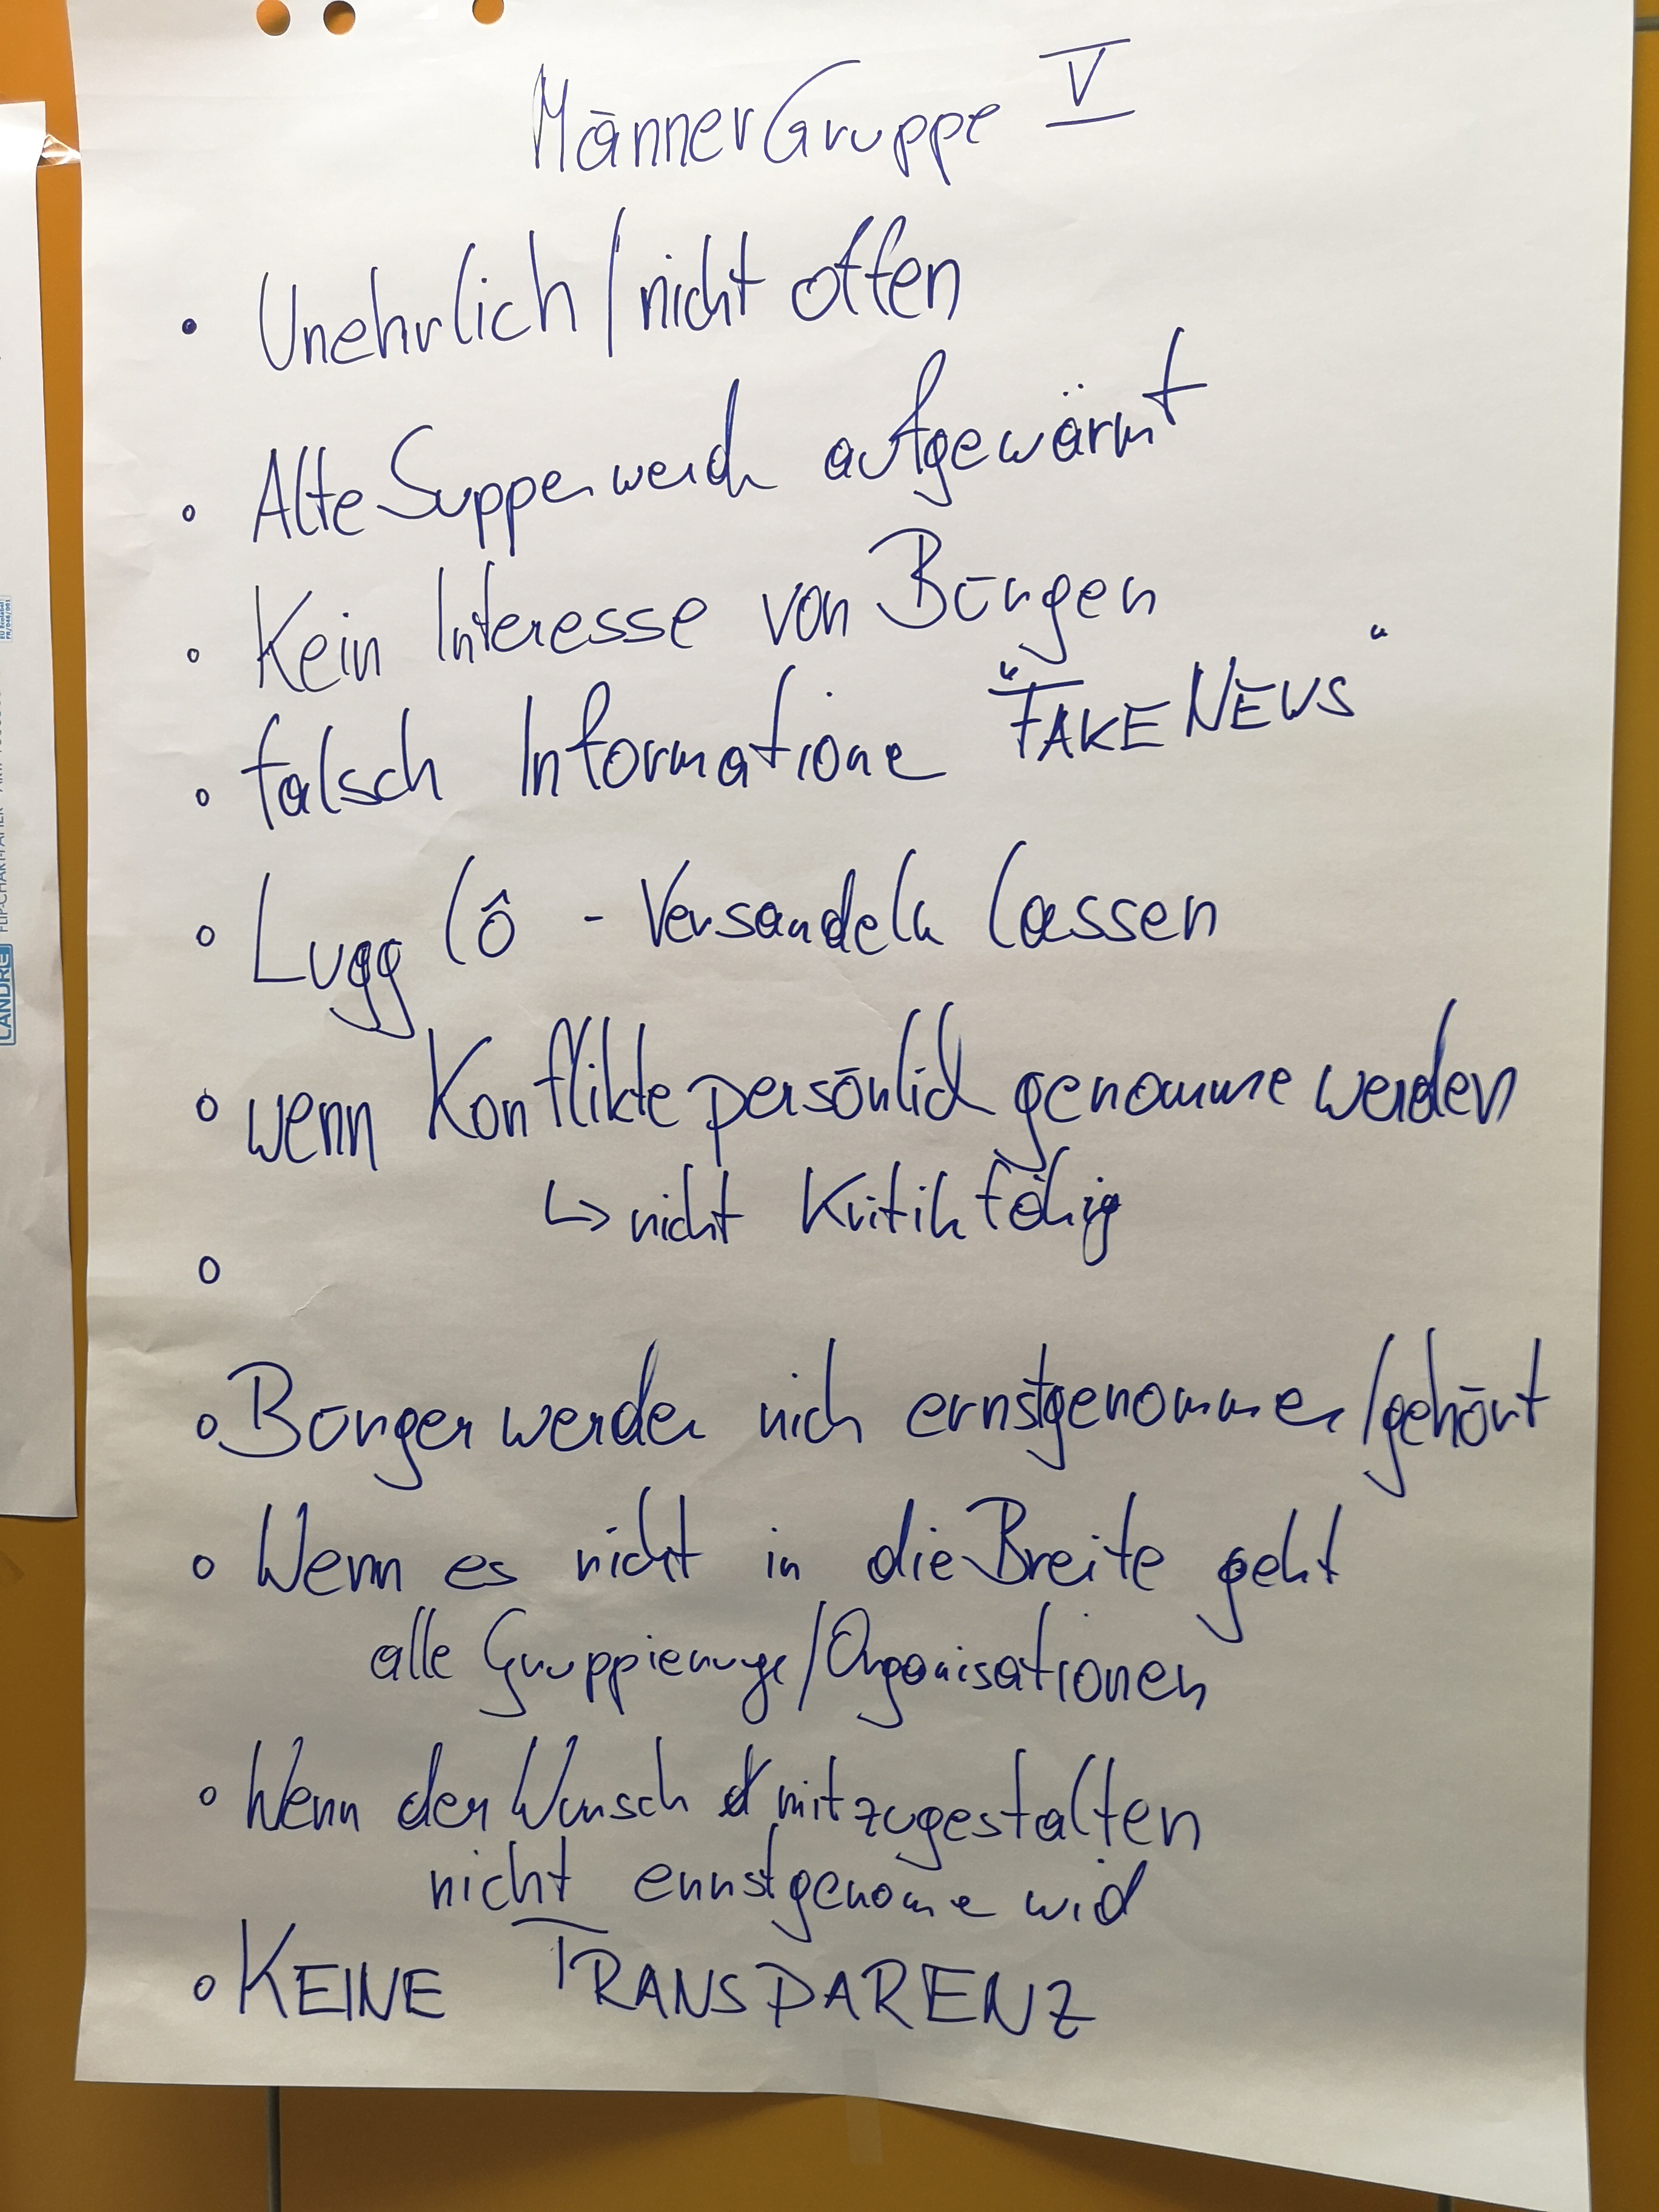 MännerGruppe V
• Unehrlich / nicht offen
• Alte Suppen werden aufgewärmt
• Kein Interesse von Bürgern
• falsch Informatione "FAKE NEWS"
• Lugg lô - Versandeln lassen
• wenn Konflikte persönlich genomme werden
↳ nicht Kritikfähig
•
• Bürger werden nich ernstgenommen / gehört
• Wenn es nicht in die Breite geht
alle Gruppierunge / Organisationen
• Wenn der Wunsch mitzugestalten
nicht ernstgenome wid
• KEINE TRANSPARENZ
LANDRÉ